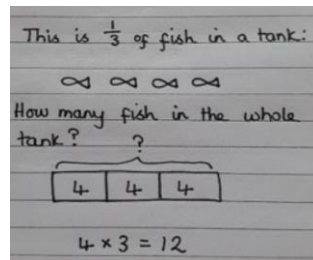 This is 1/3 of fish in a tank:
How many fish in the whole
tank? ?
4 4 4
4 × 3 = 12